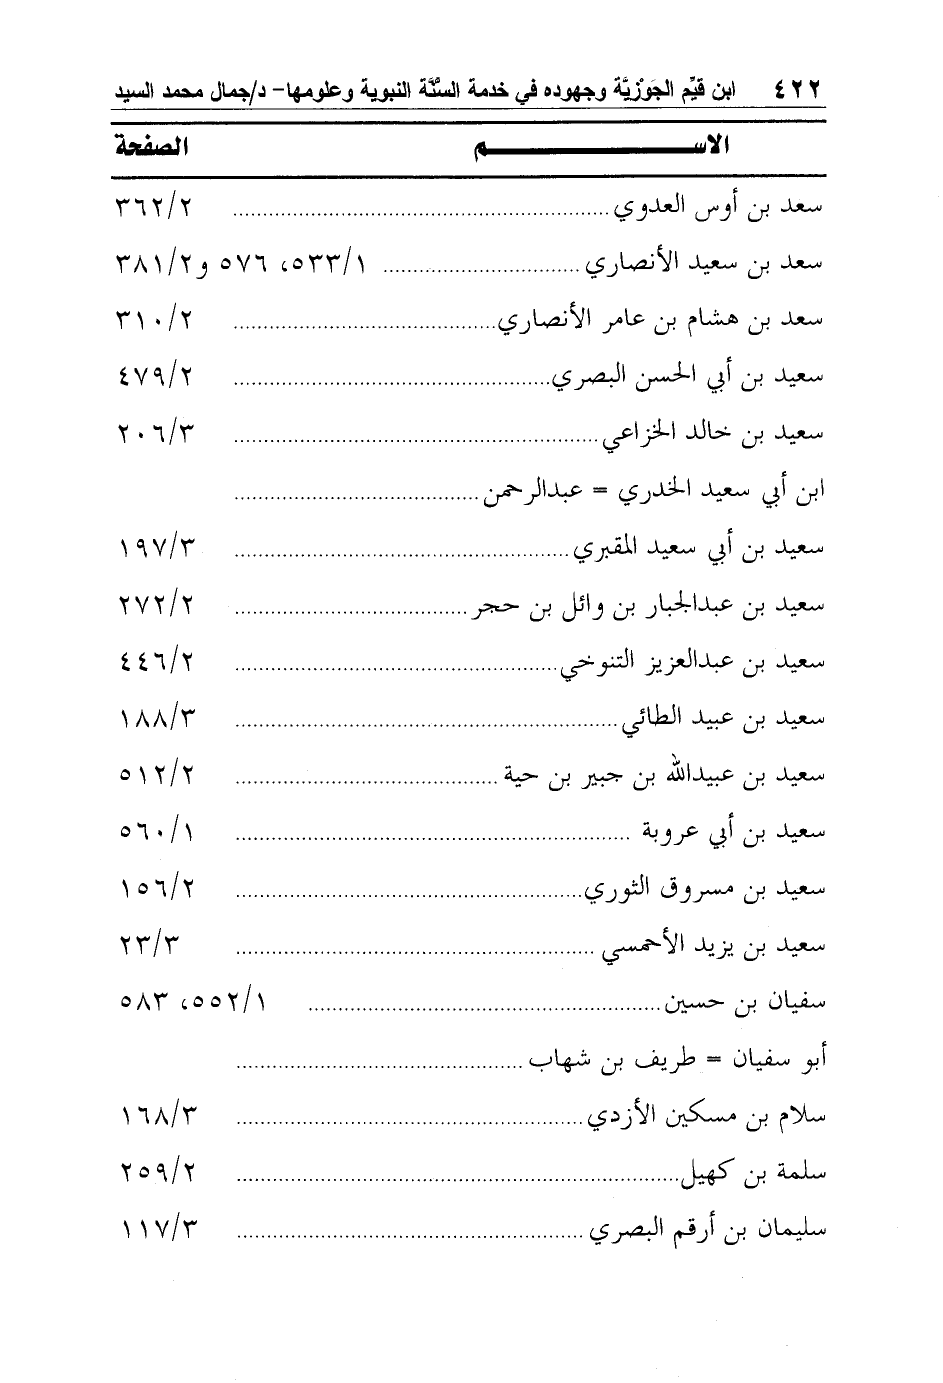 ٤٢٢ ابن قيِّم الجَوْزيَّة وجهوده في خدمة السُّنَّة النبوية وعلومها- د/جمال محمد السيد
الاســـــــــــــــــــم الصفحة
سعد بن أوس العدوي ........ ٣٦٢/٢
سعد بن سعيد الأنصاري ........ ٥٣٣/١، ٥٧٦ و٣٨١/٢
سعد بن هشام بن عامر الأنصاري ........ ٣١٠/٢
سعيد بن أبي الحسن البصري ........ ٤٧٩/٢
سعيد بن خالد الخزاعي ........ ٢٠٦/٣
ابن أبي سعيد الخدري = عبدالرحمن ........
سعيد بن أبي سعيد المقبري ........ ١٩٧/٣
سعيد بن عبدالجبار بن وائل بن حجر ........ ٢٧٢/٢
سعيد بن عبدالعزيز التنوخي ........ ٤٤٦/٢
سعيد بن عبيد الطائي ........ ١٨٨/٣
سعيد بن عبيدالله بن جبير بن حية ........ ٥١٢/٢
سعيد بن أبي عروبة ........ ٥٦٠/١
سعيد بن مسروق الثوري ........ ١٥٦/٢
سعيد بن يزيد الأحمسي ........ ٢٣/٣
سفيان بن حسين ........ ٥٥٢/١، ٥٨٣
أبو سفيان = طريف بن شهاب ........
سلام بن مسكين الأزدي ........ ١٦٨/٣
سلمة بن كهيل ........ ٢٥٩/٢
سليمان بن أرقم البصري ........ ١١٧/٣